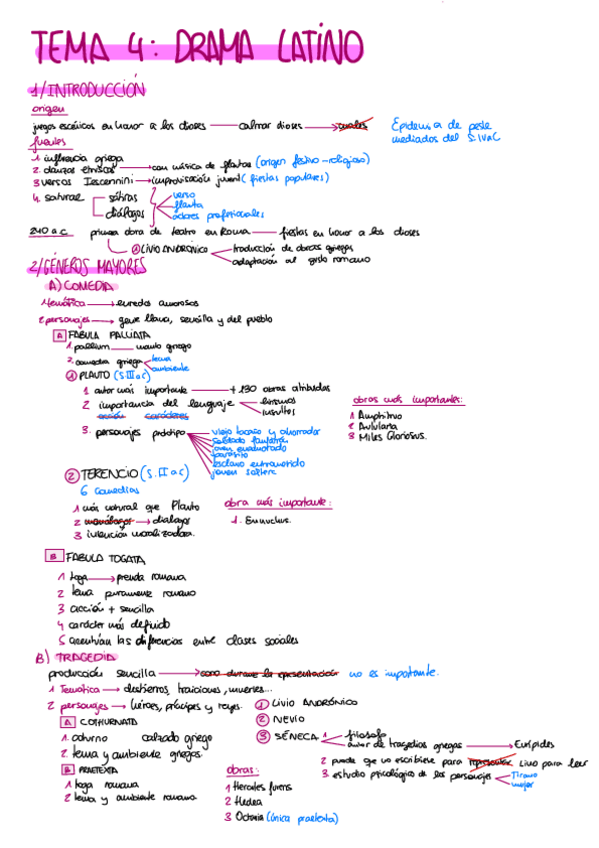 TEMA 4: DRAMA LATINO
1/INTRODUCCIÓN
origen
juegos escénicos en honor a los dioses → calmar dioses → Epidemia de peste
mediados del S.IVaC
fuentes
1. influencia griega
2. danzas etruscas → con música de flautas (origen festivo-religioso)
3 versos Fescennini → improvisación juvenil (fiestas populares)
4. saturae sátiras verso
diálogos flauta
actores profesionales
240 a.c primera obra de teatro en Roma fiestas en honor a los dioses
① LIVIO ANDRÓNICO traducción de obras griegas
adaptación al gusto romano
2/GÉNEROS MAYORES
A) COMEDIA
1 temática → enredos amorosos
2 personajes → gente llana, sencilla y del pueblo
A FABULA PALLIATA
1 pallium manto griego
2. comedia griega tema
ambiente
① PLAUTO (S.III a C)
1 autor más importante + 130 obras atribuidas
2 importancia del lenguaje
insultos
acción carácteres
3. personajes prototipo viejo tacaño y ahorrador
soldado fanfarrón
joven enamorado
parásito
esclavo entrometido
joven soltera
obras más importantes:
1 Amphitruo
2 Aulularia
3 Miles Gloriosus.
② TERENCIO (S. II a C)
6 comedias
1 más natural que Plauto
2 monólogos → diálogos
3 intención moralizadora.
obra más importante:
1. Eunuchus.
B FABULA TOGATA
1 toga → prenda romana
2 tema puramente romano
3 acción + sencilla
4 carácter más definido
5 acentúan las diferencias entre clases sociales
B) TRAGEDIA
producción sencilla → coro durante la representación no es importante.
1 Temática → destierros, traiciones, muertes...
2 personajes → héroes, príncipes y reyes.
① LIVIO ANDRÓNICO
② NEVIO
③ SÉNECA 1 filósofo
autor de tragedias griegas → Eurípides
2 puede que no escribiese para representar sino para leer
3. estudio psicológico de los personajes Tirano
mujer
A COTHURNATA
1. coturno calzado griego
2. tema y ambiente griegos.
B PRAETEXTA
1 toga romana
2 tema y ambiente romano
obras:
1 Hercules furens
2 Medea
3 Octavia (única praetexta)